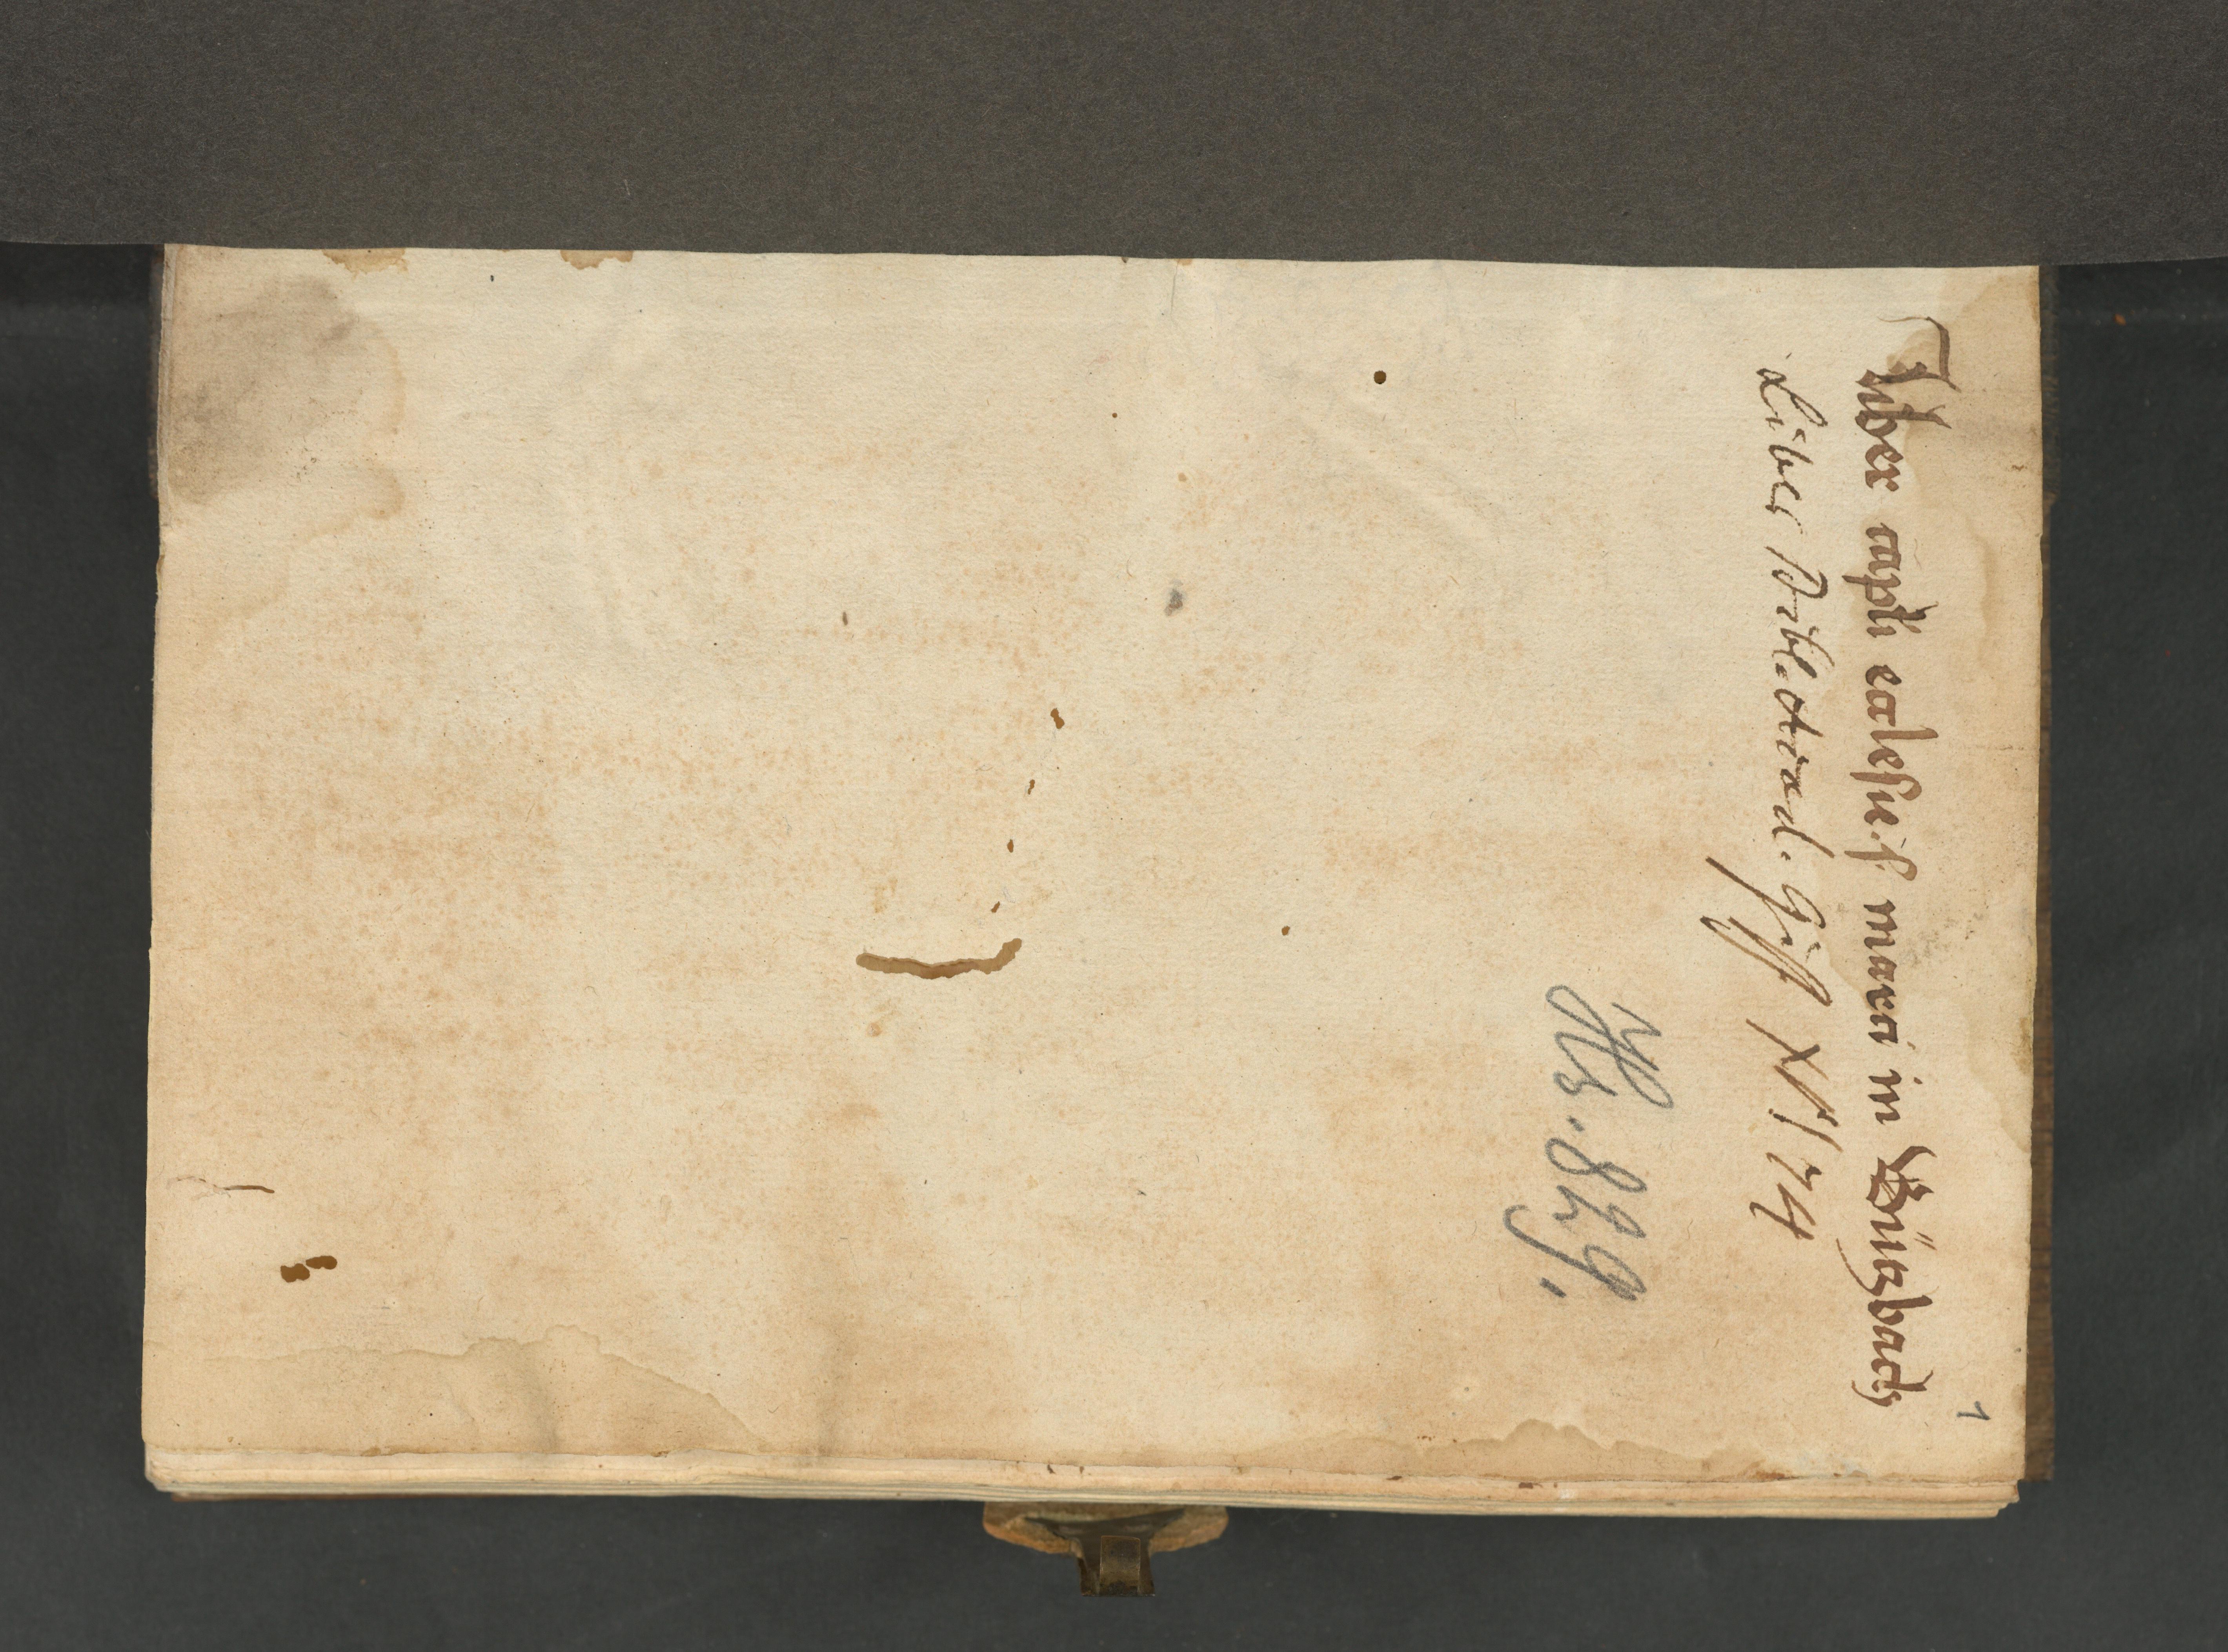 1
Liber capli ecclesie s marci in Butzbach
Liber Bibl. Acad. Giss XV 174
Hs. 829.